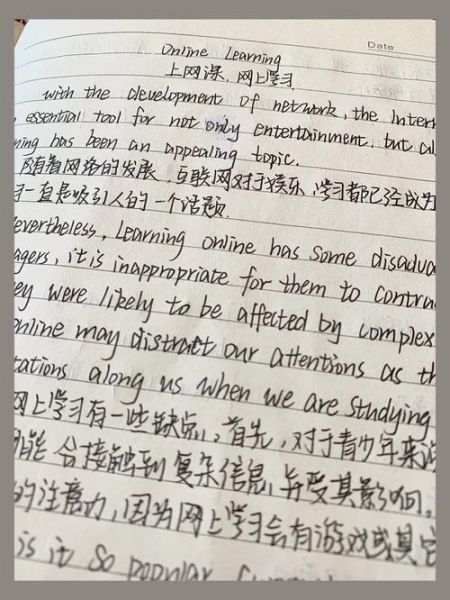 Date
Online Learning
上网课，网上学习
with the development of network, the Intern
essential tool for not only entertainment, but al
ning has been an appealing topic.
随着网络的发展，互联网对于娱乐，学习都已经成为
习一直是吸引人的一个话题.
evertheless, Learning online has some disadva
agers, it is inappropriate for them to contra
ey were likely to be affected by complex
nline may distract our attentions as th
tations along us when we are studying
网上学习有一些缺点，首先，对于青少年来说
可能会接触到复杂信息，并受其影响，
的注意力，因为网上学习会有游戏或其它
is it so popular